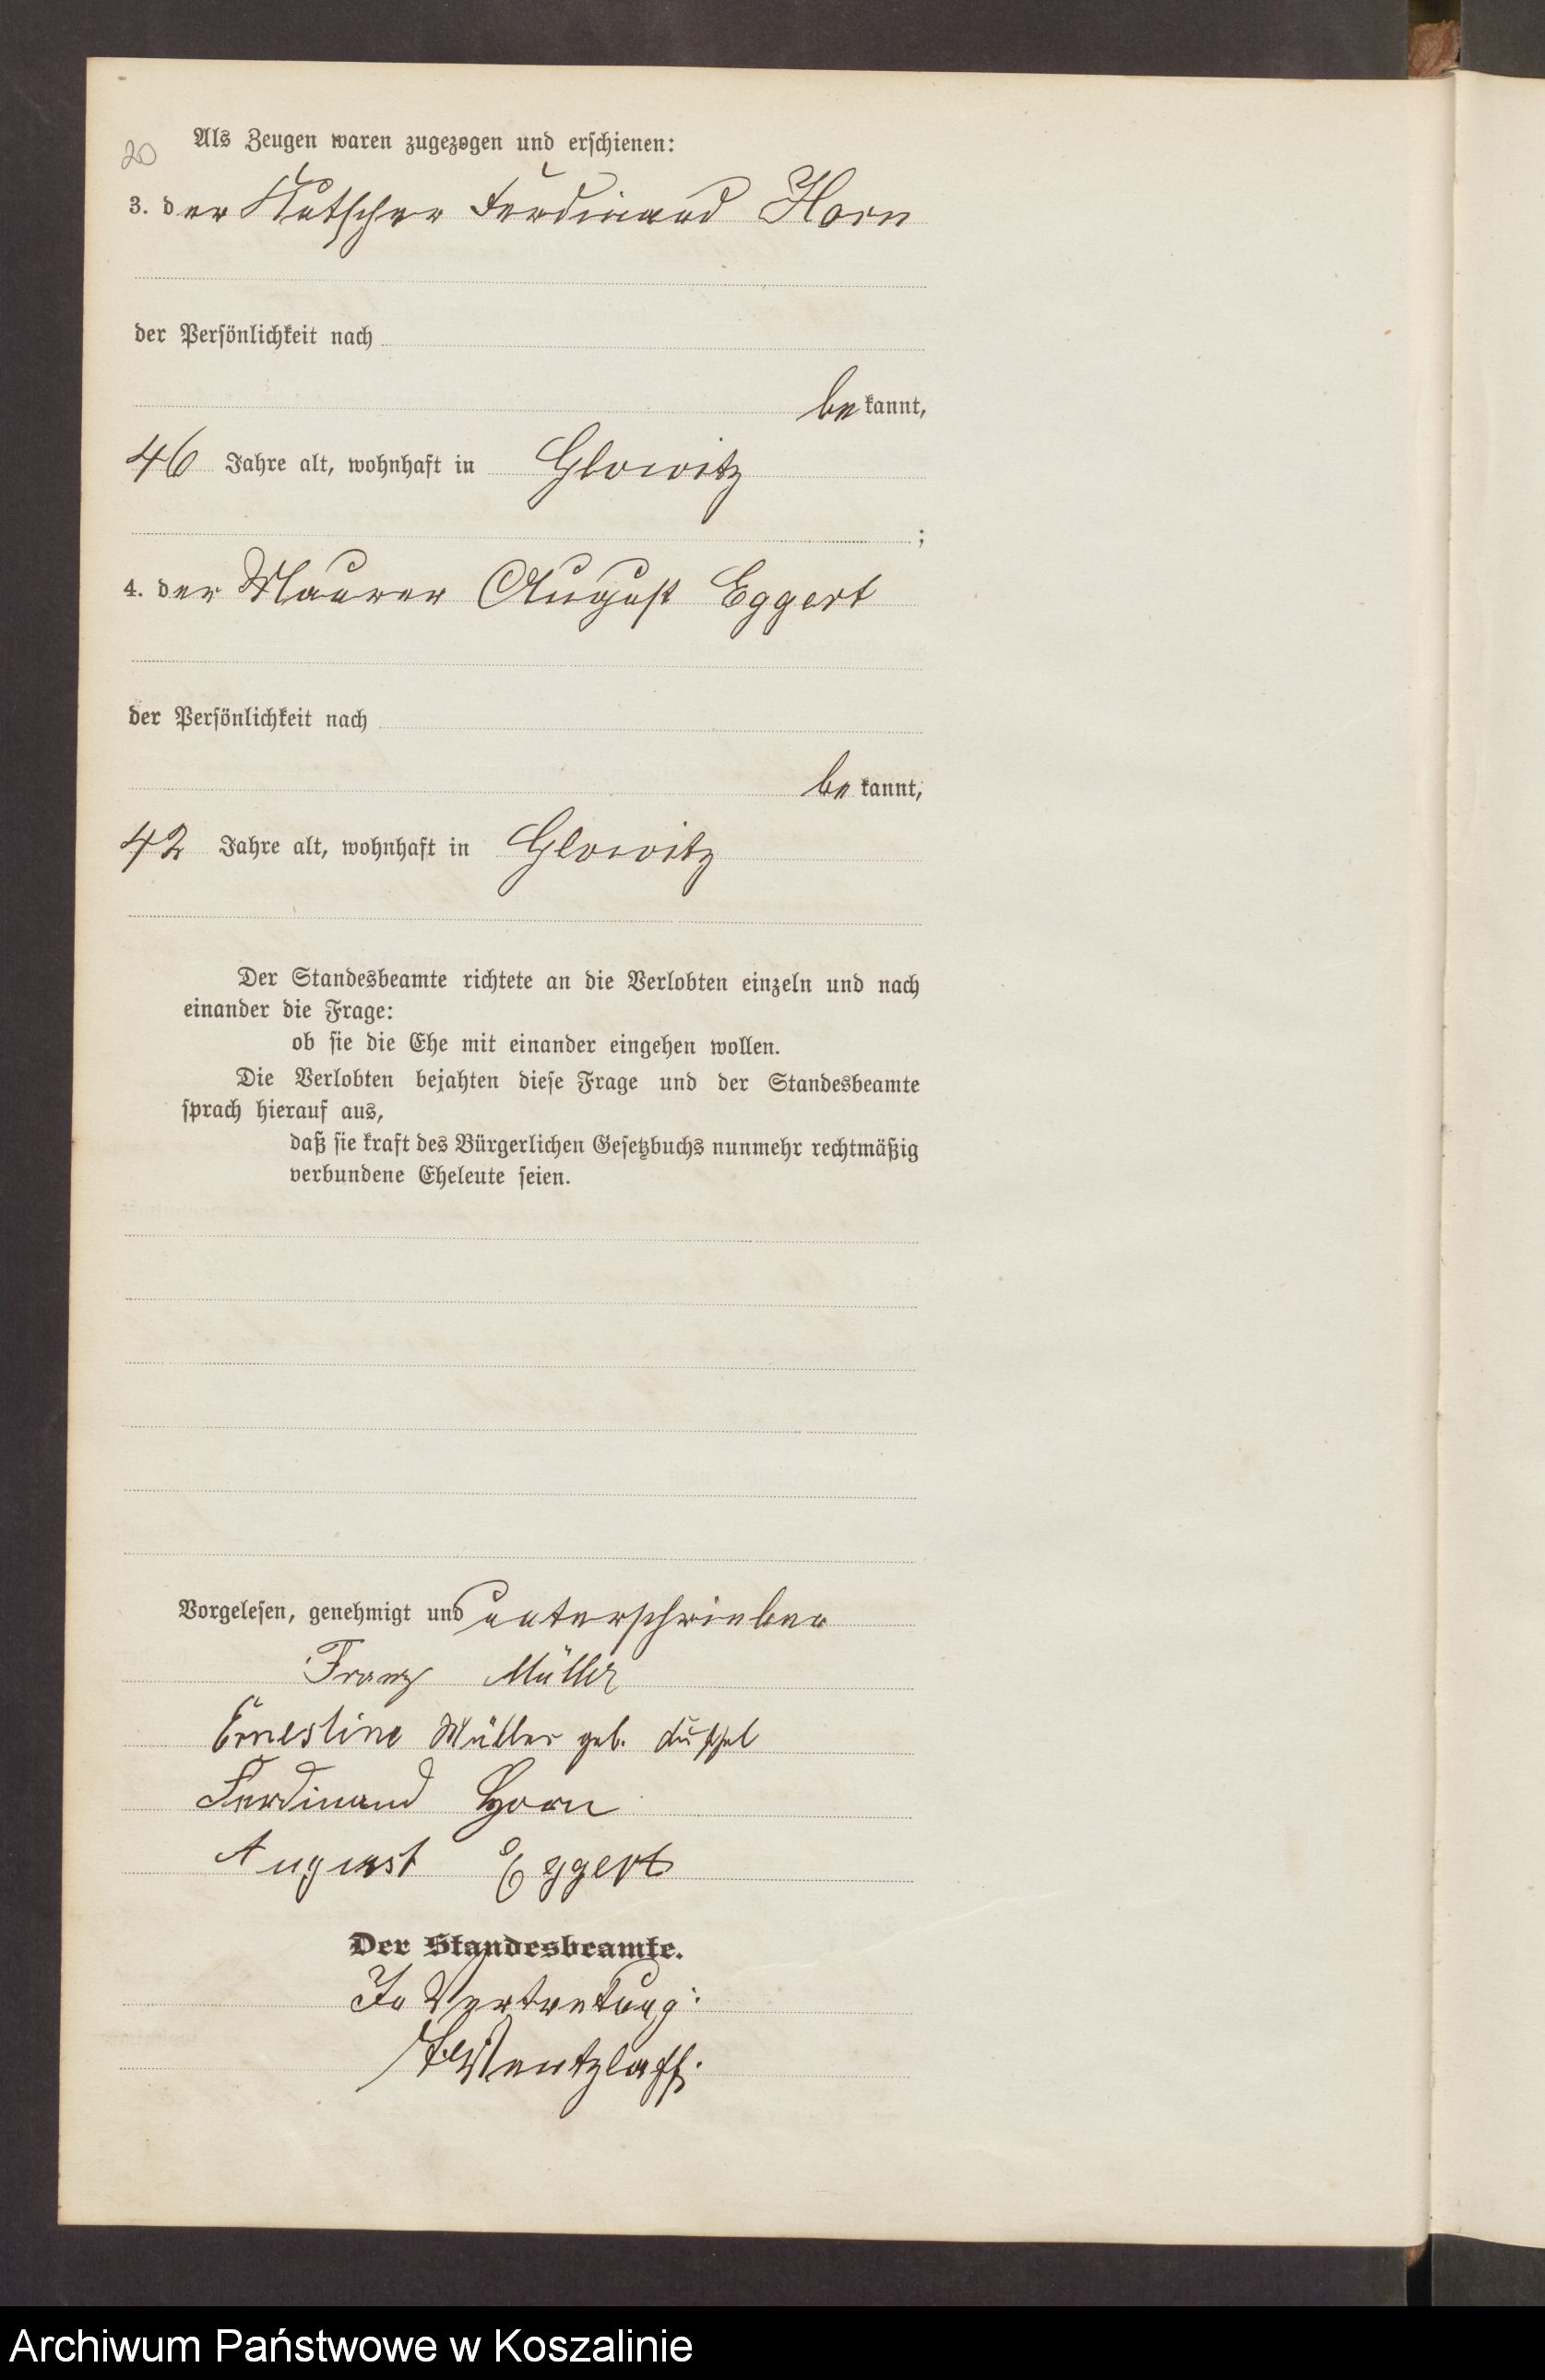 20
Als Zeugen waren zugezogen und erschienen:
3. der Kutscher Ferdinand Horn
der Persönlichkeit nach
be kannt,
46 Jahre alt, wohnhaft in Glowitz
;
4. der Maurer August Eggert
der Persönlichkeit nach
be kannt,
42 Jahre alt, wohnhaft in Glowitz
Der Standesbeamte richtete an die Verlobten einzeln und nach
einander die Frage:
ob sie die Ehe mit einander eingehen wollen.
Die Verlobten bejahten diese Frage und der Standesbeamte
sprach hierauf aus,
daß sie kraft des Bürgerlichen Gesetzbuchs nunmehr rechtmäßig
verbundene Eheleute seien.
Vorgelesen, genehmigt und unterschrieben
Franz Müller
Ernestine Müller geb.
Ferdinand Horn
August Eggert
Der Standesbeamte.
In Vertretung:
Wentzlaff.
Archiwum Państwowe w Koszalinie